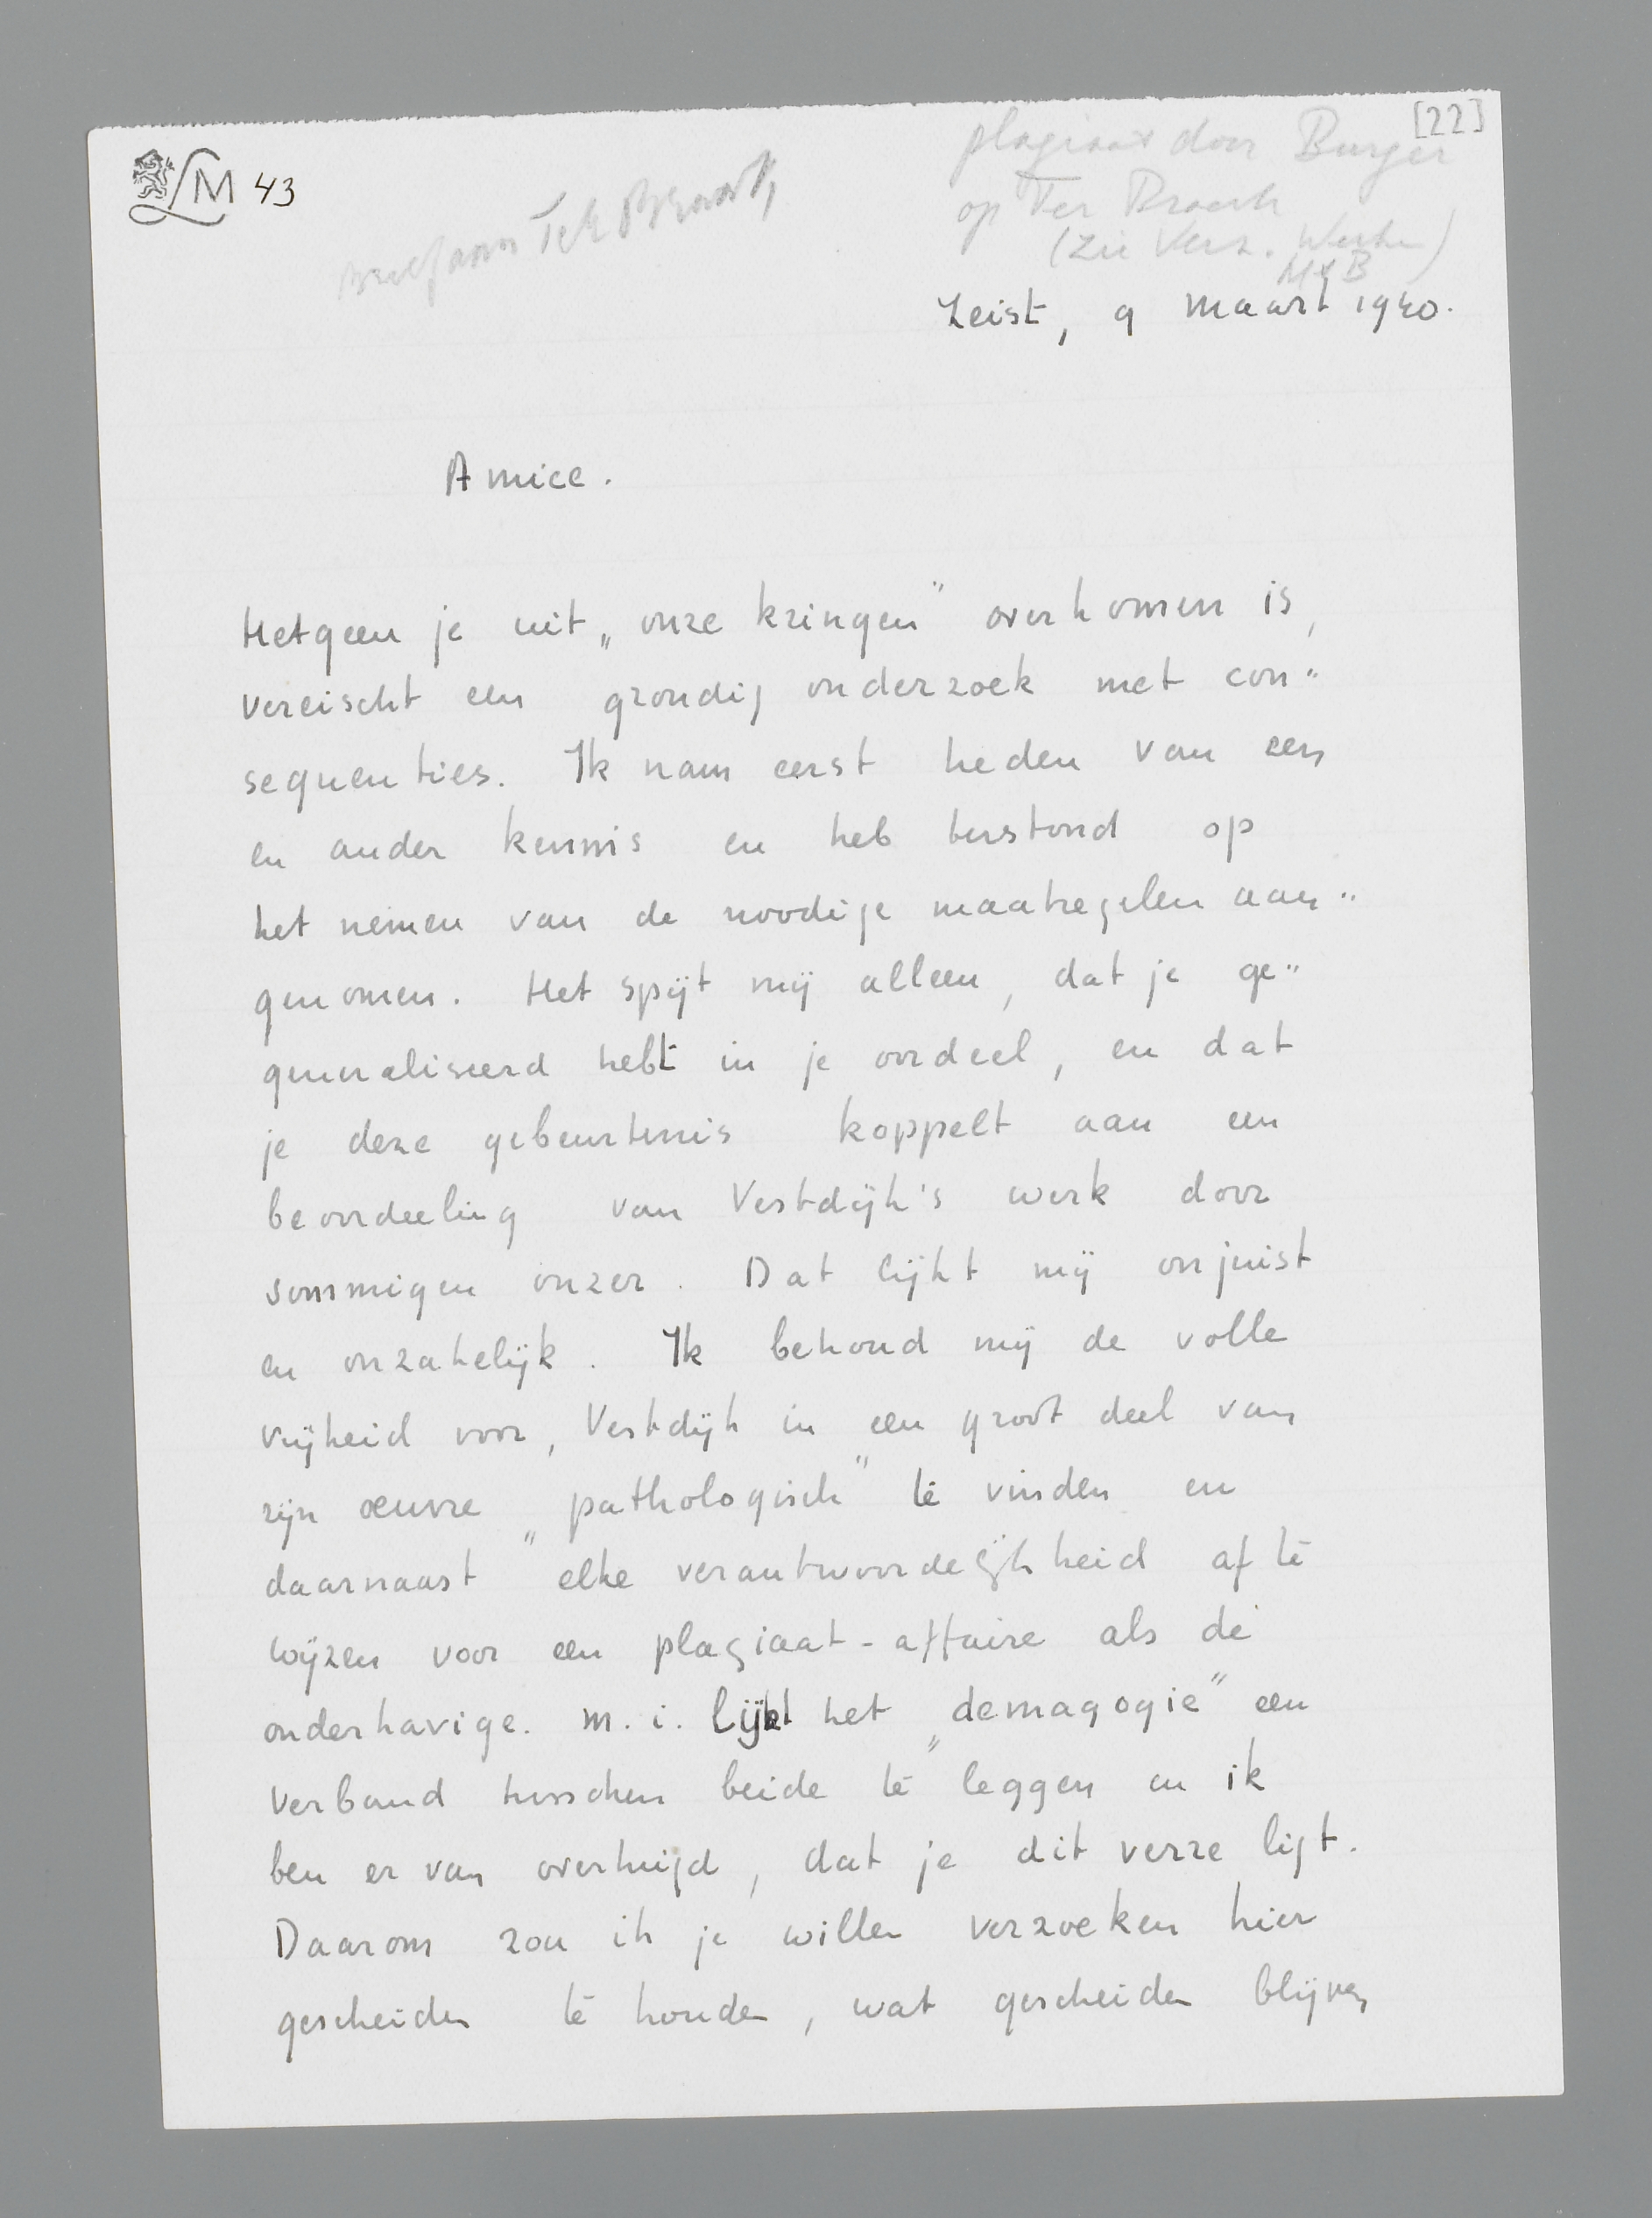 [22]
plagiaat door Burger
op Ter Braak
(zie Verz. Werken)
MtB
LM 43
Brief aan Ter Braak
Zeist, 9 maart 1940.
Amice.
Hetgeen je uit „onze kringen" overkomen is,
vereischt een grondig onderzoek met con"
sequenties. Ik nam eerst heden van een
en ander kennis en heb terstond op
het nemen van de noodige maatregelen aan"
genomen. Het spijt mij alleen, dat je ge"
generaliseerd hebt in je oordeel, en dat
je deze gebeurtenis koppelt aan een
beoordeeling van Vestdijk's werk door
sommigen onzer. Dat lijkt mij onjuist
en onzakelijk. Ik behoud mij de volle
vrijheid voor, Vestdijk in een groot deel van
zijn œuvre „pathologisch" te vinden en
daarnaast elke verantwoordelijkheid af te
wijzen voor een plagiaat-affaire als de
onderhavige. m.i. lijkt het „demagogie" een
verband tusschen beide te leggen en ik
ben er van overtuigd, dat je dit verre ligt.
Daarom zou ik je willen verzoeken hier
gescheiden te houden, wat gescheiden blijven